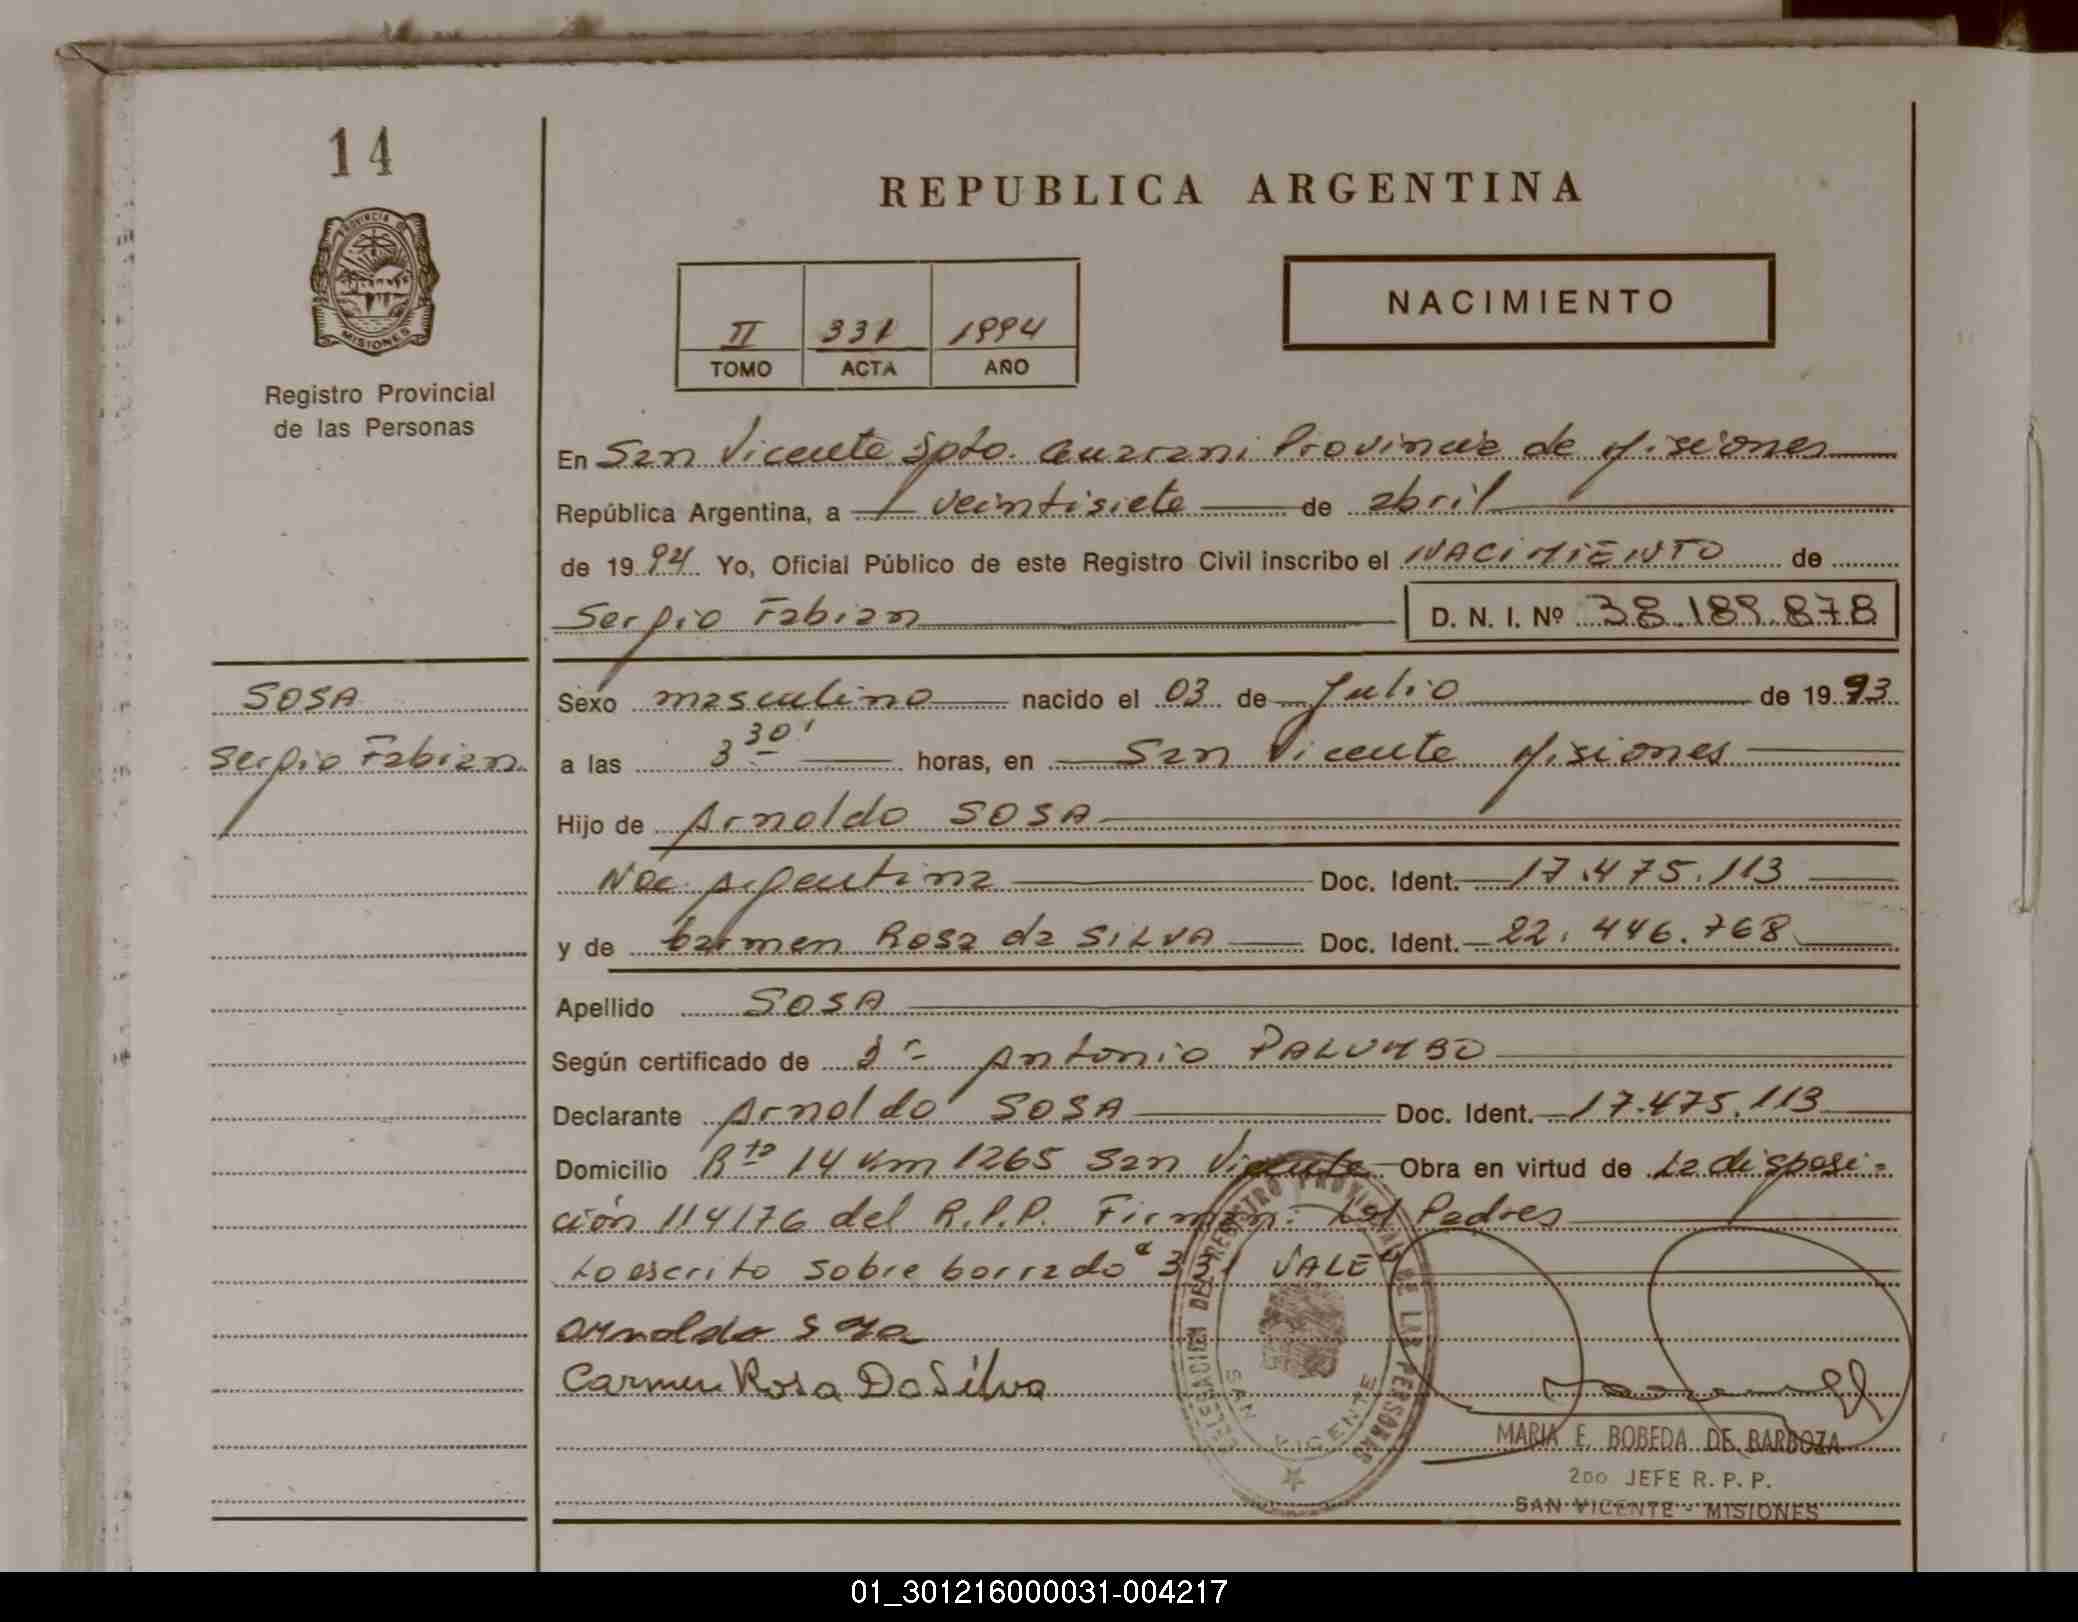 14
PROVINCIA DE
MISIONES
Registro Provincial
de las Personas
REPUBLICA ARGENTINA
II 331 1994
TOMO ACTA AÑO
NACIMIENTO
En San Vicente Dpto. Guarani Provincia de Misiones
República Argentina, a veintisiete de abril
de 1994 Yo, Oficial Público de este Registro Civil inscribo el NACIMIENTO de
Sergio Fabian D. N. I. Nº 38.189.878
SOSA
Sergio Fabian
Sexo masculino nacido el 03 de Julio de 1993
a las 3 30' horas, en San Vicente Misiones
Hijo de Arnoldo SOSA
Nac. Argentina Doc. Ident. 17.475.113
y de Carmen Rosa da SILVA Doc. Ident. 22.446.768
Apellido SOSA
Según certificado de Dr Antonio PALUMBO
Declarante Arnoldo SOSA Doc. Ident. 17.475.113
Domicilio Rta 14 Km 1265 San Vicente Obra en virtud de La disposi-
ción 114/76 del R.P.P. Firman: Los Padres
Lo escrito sobre borrado "331 VALE"
Arnoldo Sosa
Carmen Rosa Da Silva
DELEGACION DEL REGISTRO PROVINCIAL DE LAS PERSONAS
SAN VICENTE
MARIA E. BOBEDA DE BARBOZA
2DO JEFE R. P. P.
SAN VICENTE - MISIONES
01_301216000031-004217